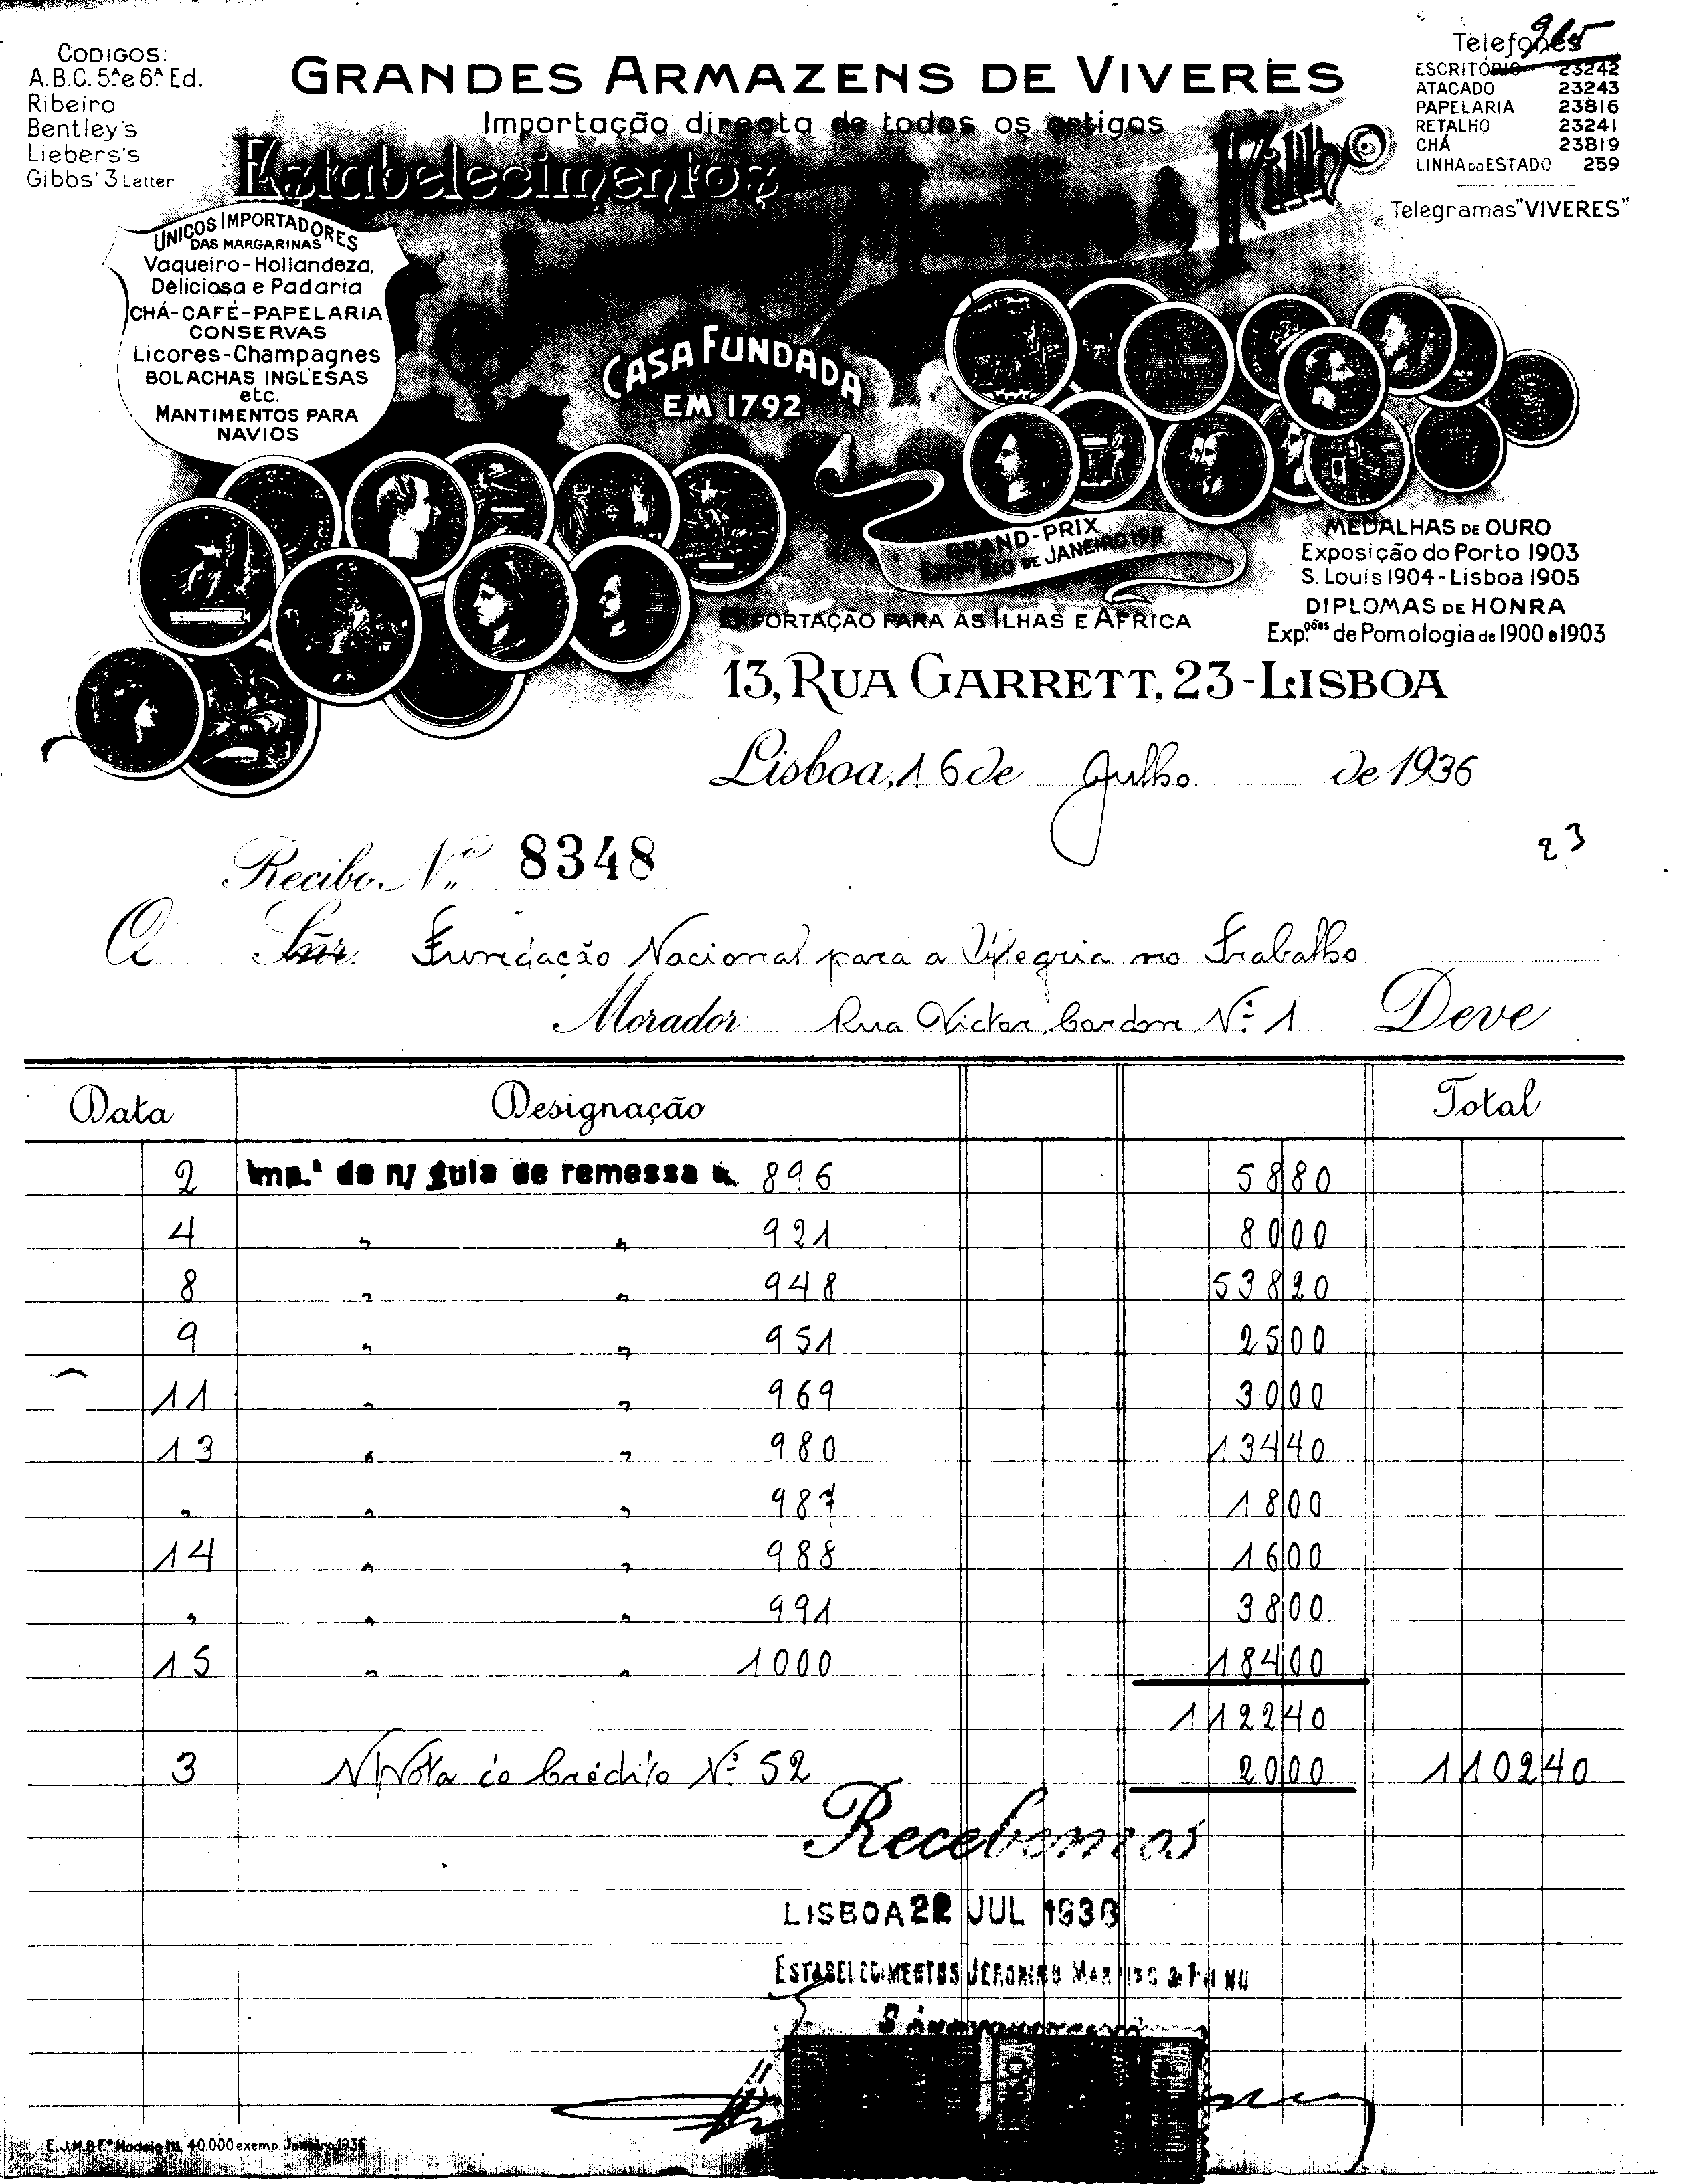 CODIGOS:
A.B.C. 5ª e 6ª Ed.
Ribeiro
Bentley's
Liebers's
Gibbs' 3 Letter
GRANDES ARMAZENS DE VIVERES
Importação directa de todos os artigos
Estabelecimentos
& Filho
965
Telefones
ESCRITÓRIO 23242
ATACADO 23243
PAPELARIA 23816
RETALHO 23241
CHÁ 23819
LINHA DO ESTADO 259
Telegramas "VIVERES"
UNICOS IMPORTADORES
DAS MARGARINAS
Vaqueiro-Hollandeza,
Deliciosa e Padaria
CHÁ-CAFÉ-PAPELARIA
CONSERVAS
Licores-Champagnes
BOLACHAS INGLESAS
etc.
MANTIMENTOS PARA
NAVIOS
CASA FUNDADA
EM 1792
GRAND-PRIX
RIO DE JANEIRO 1911
EXPORTAÇÃO PARA AS ILHAS E AFRICA
MEDALHAS DE OURO
Exposição do Porto 1903
S. Louis 1904-Lisboa 1905
DIPLOMAS DE HONRA
Exp.ções de Pomologia de 1900 e 1903
13, RUA GARRETT, 23-LISBOA
Lisboa, 16 de Julho de 1936
23
Recibo Nº 8348
A Snr. Fundação Nacional para a Alegria no Trabalho
Morador Rua Victor Cordon Nº 1 Deve
Data Designação Total
2 Imp.ª de n/ guia de remessa n. 896 5880
4 " " 921 8000
8 " " 948 53820
9 " " 951 2500
11 " " 969 3000
13 " " 980 13440
" " " 987 1800
14 " " 988 1600
" " " 991 3800
15 " " 1000 18400
112240
3 N/Nota de Crédito Nº 52 2000 110240
Recebemos
LISBOA 22 JUL 1936
ESTABELECIMENTOS JERONIMO MARTINS & FILHO
E.J.M.& Fº Modelo 111. 40.000 exemp. Janeiro 1936